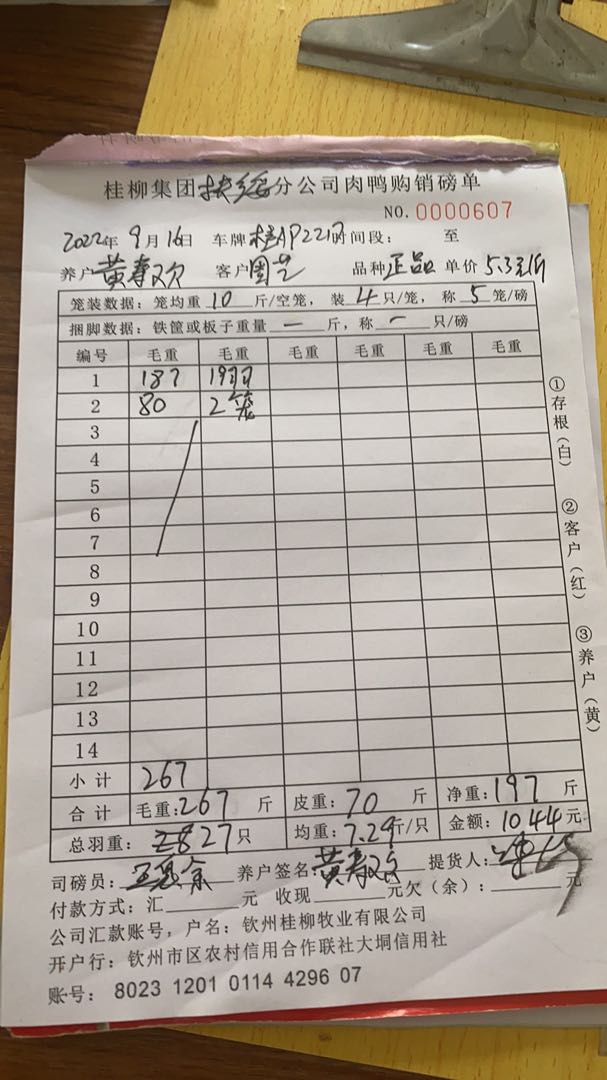 桂柳集团扶绥分公司肉鸭购销磅单
NO. 0000607
2022年 9月16日 车牌 桂AP221 时间段： 至
养户 黄寿欢 客户 周艺 品种 正品 单价 5.3元/斤
笼装数据：笼均重 10 斤/空笼，装 4 只/笼，称 5 笼/磅
捆脚数据：铁筐或板子重量 — 斤，称 — 只/磅
编号 毛重 毛重 毛重 毛重 毛重 毛重
1 187 19羽
2 80 2笼
3
4
5
6
7
8
9
10
11
12
13
14
小计 267
合计 毛重：267 斤 皮重：70 斤 净重：197 斤
总羽重： 27 只 均重：7.29斤/只 金额：1044 元
司磅员： 养户签名 黄寿欢 提货人：
付款方式：汇 元 收现 元欠（余）： 元
公司汇款账号，户名：钦州桂柳牧业有限公司
开户行：钦州市区农村信用合作联社大垌信用社
账号： 8023 1201 0114 4296 07
①存根（白）
②客户（红）
③养户（黄）